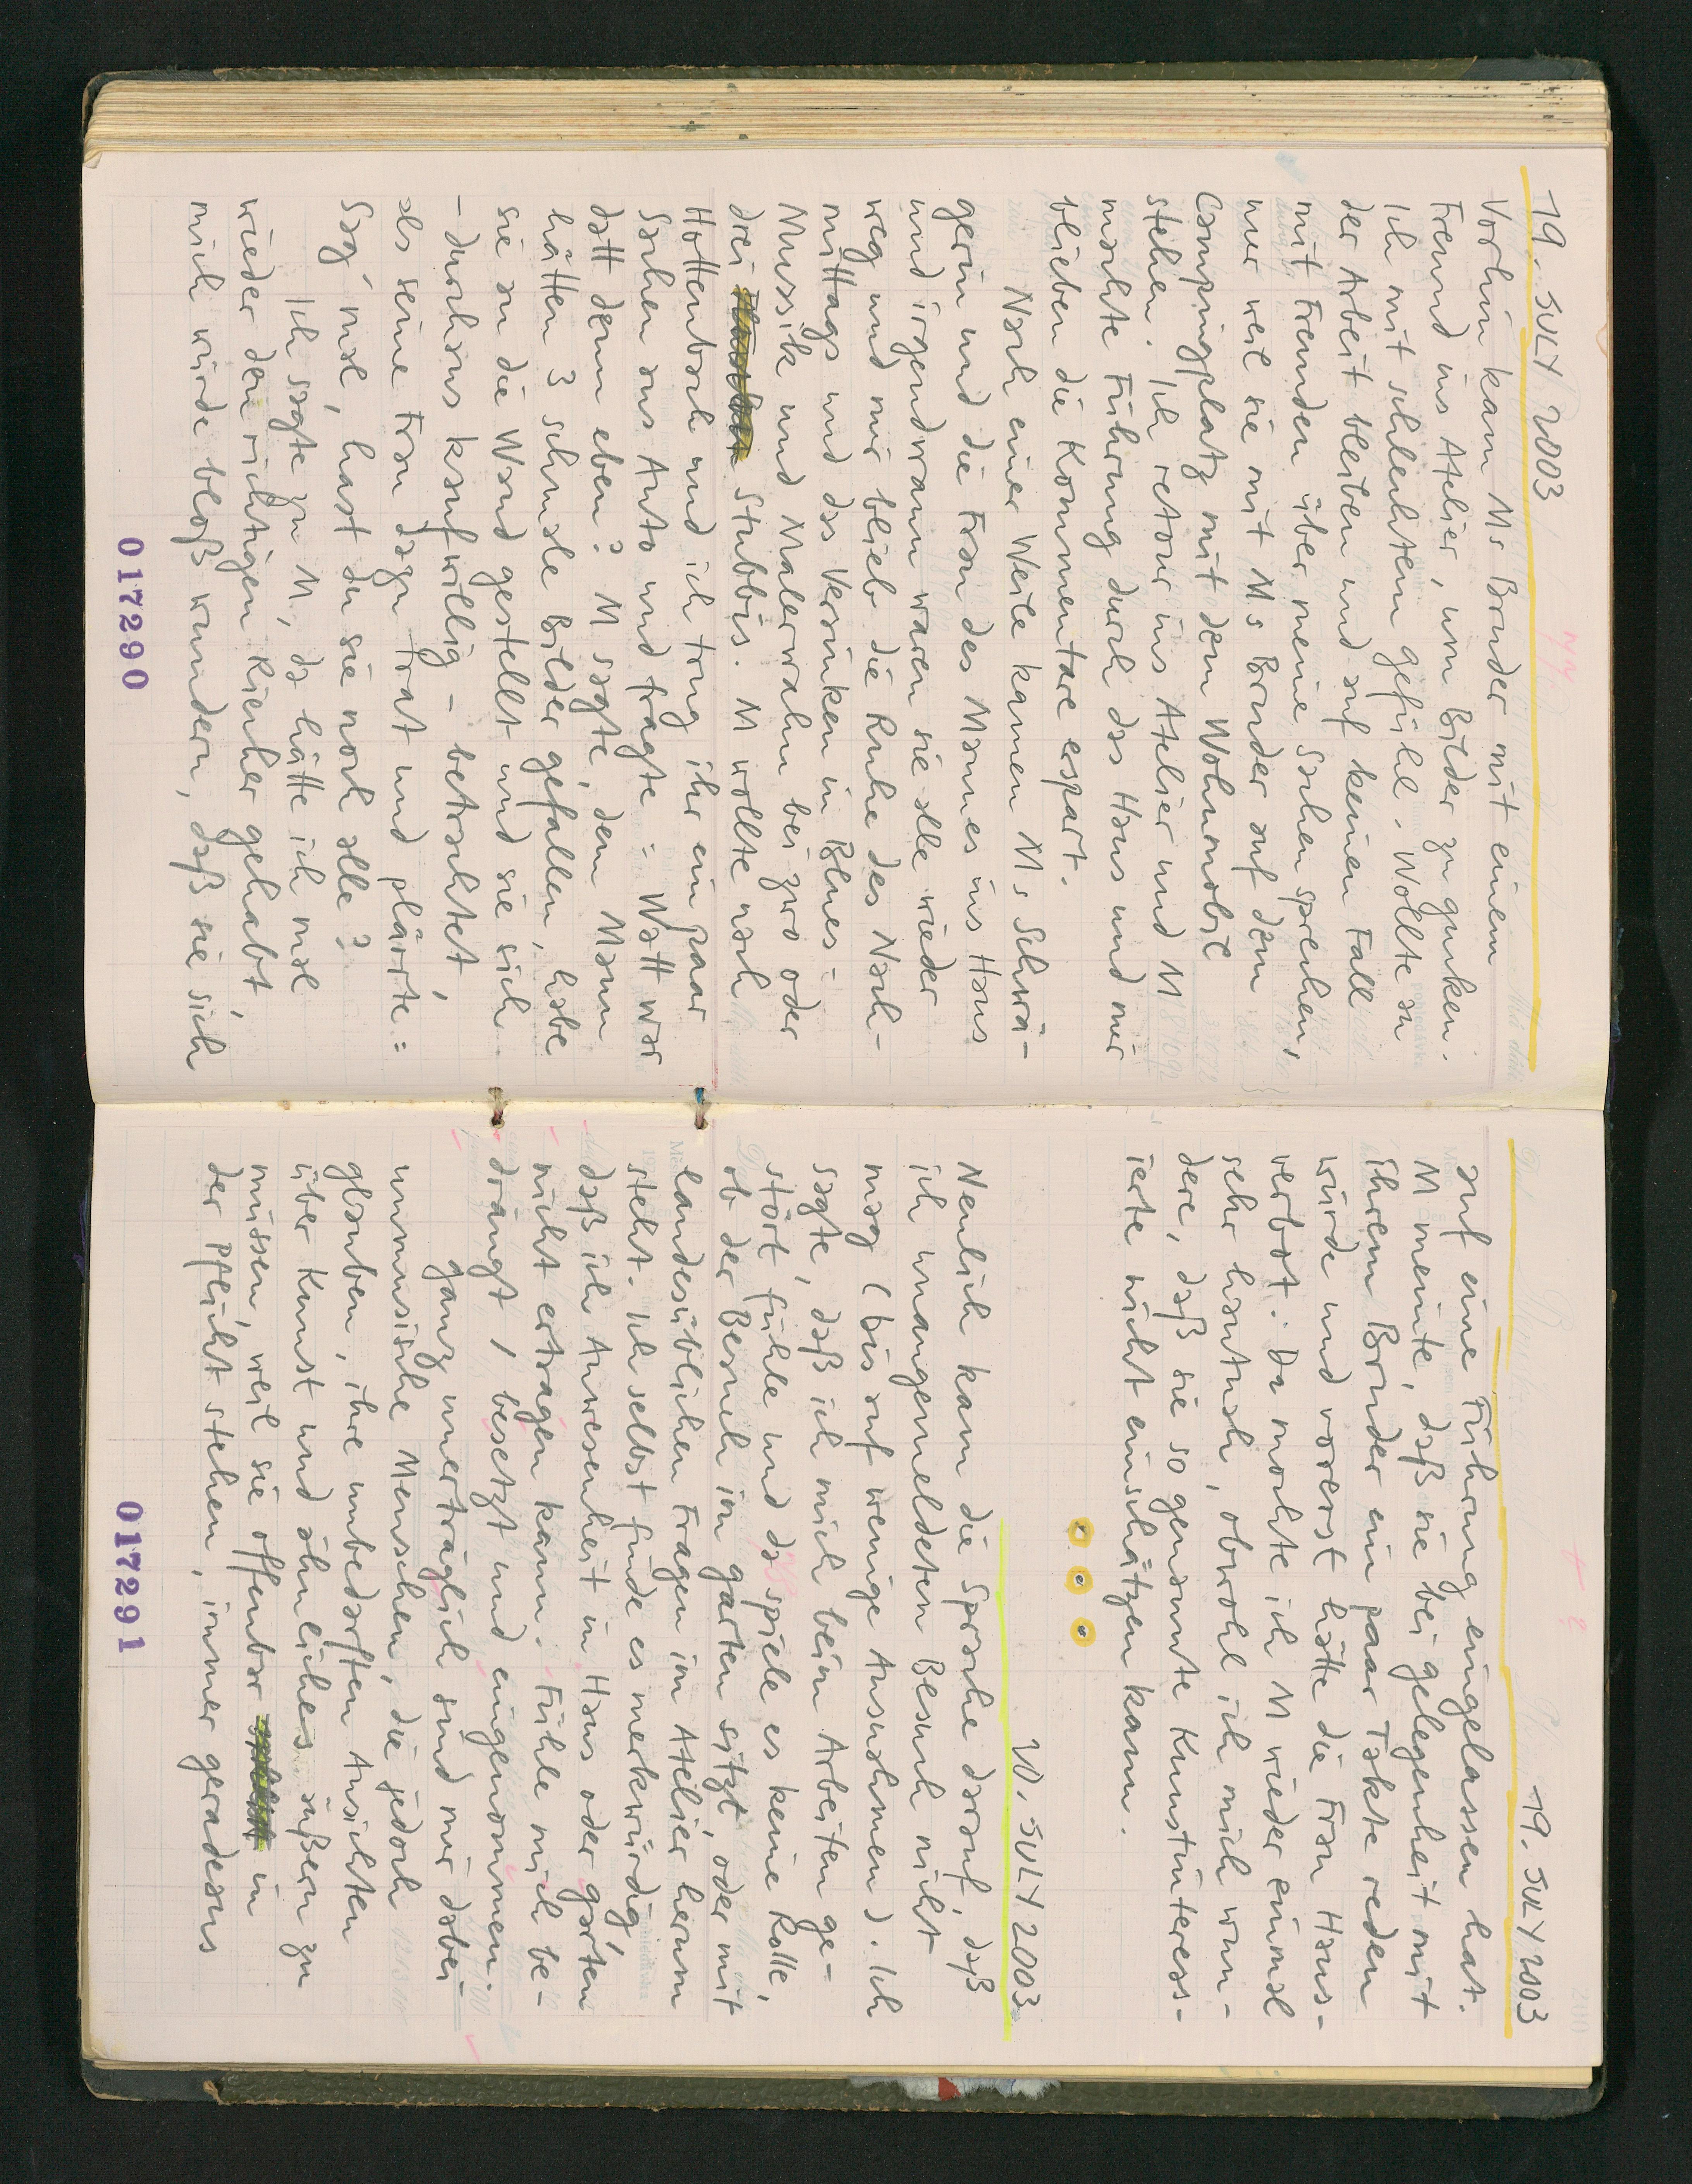 19. JULY 2003
Vorhin kam Ms Bruder mit einem
Freund ins Atelier, um Bilder zu gucken.
Ich mit schlechtem gefühl. Wollte an
der Arbeit bleiben und auf keinen Fall
mit Fremden über meine Sachen sprechen,
nur weil sie mit Ms Bruder auf dem
Campingplatz mit dem Wohnmobil
stehen. Ich retour ins Atelier und M
machte Führung durch das Haus und mir
blieben die Kommentare erspart.
Nach einer Weile kamen Ms Schwä-
gerin und die Frau des Mannes ins Haus
und irgendwann waren sie alle wieder
weg und mir blieb die Ruhe des Nach-
mittags und das Versinken in Blues-
Mussik und Malerwahn bei zwo oder
drei Stubbis. M wollte nach
Hottenbach und ich trug ihr ein paar
Sachen ans Auto und fragte: Watt war
datt denn eben? M sagte, dem Mann
hätten 3 schmale Bilder gefallen, habe
sie an die Wand gestellt und sie sich
- durchaus kaufwillig - betrachtet,
als seine Frau dazu trat und plärrte:
Sag' mal, hast du sie noch alle?
Ich sagte zu M, da hätte ich mal
wieder den richtigen Riecher gehabt,
mich würde bloß wundern, daß sie sich
017290
19. JULY 2003
auf eine Führung eingelassen hat.
M meinte, daß sie bei gelegenheit mit
Ihrem Bruder ein paar Takte reden
würde und vorerst hätte die Frau Haus-
verbot. Da mochte ich M wieder einmal
sehr hautnah, obwohl ich mich wun-
dere, daß sie so genannte Kunstinteress-
ierte nicht einschätzen kann.
20. JULY 2003
Neulich kam die Sprache darauf, daß
ich unangemeldeten Besuch nicht
mag (bis auf wenige Ausnahmen). Ich
sagte, daß ich mich beim Arbeiten ge-
stört fühle und da spiele es keine Rolle,
ob der Besuch im garten sitzt, oder mit
landesüblichen Fragen im Atelier herum
steht. Ich selbst finde es merkwürdig,
daß ich Anwesenheit in Haus oder garten
nicht ertragen kann. Fühle mich be-
drängt / besetzt und eingenommen.
ganz unerträglich sind mir dabei
unmusische Menschen, die jedoch
glauben, ihre unbedarften Ansichten
über Kunst und ähnliches äußern zu
müssen, weil sie offenbar in
der Pflicht stehen, immer geradeaus
017291